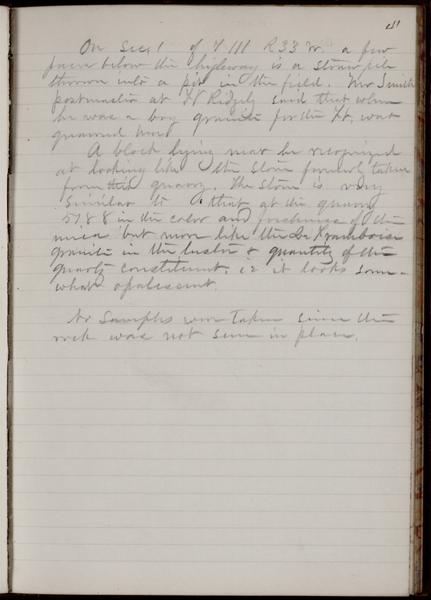 151
On Sec 1 of T 111 R 33 W. a few
paces below the highway is a stone pile
thrown into a pit in the field. Mr Smith
postmaster at Ft Ridgely said that when
he was a boy granite for the Ft, was
quarried there
A block lying near he recognized
as looking like the stone formerly taken
from this quarry. The stone is very
similar to that at the quarry
5188 in the color and freshness of the
mica but more like the
granite in the luster & quantity of the
quartz constituent. i.e. it looks some-
what opalescent.
No samples were taken since the
rock was not seen in place.